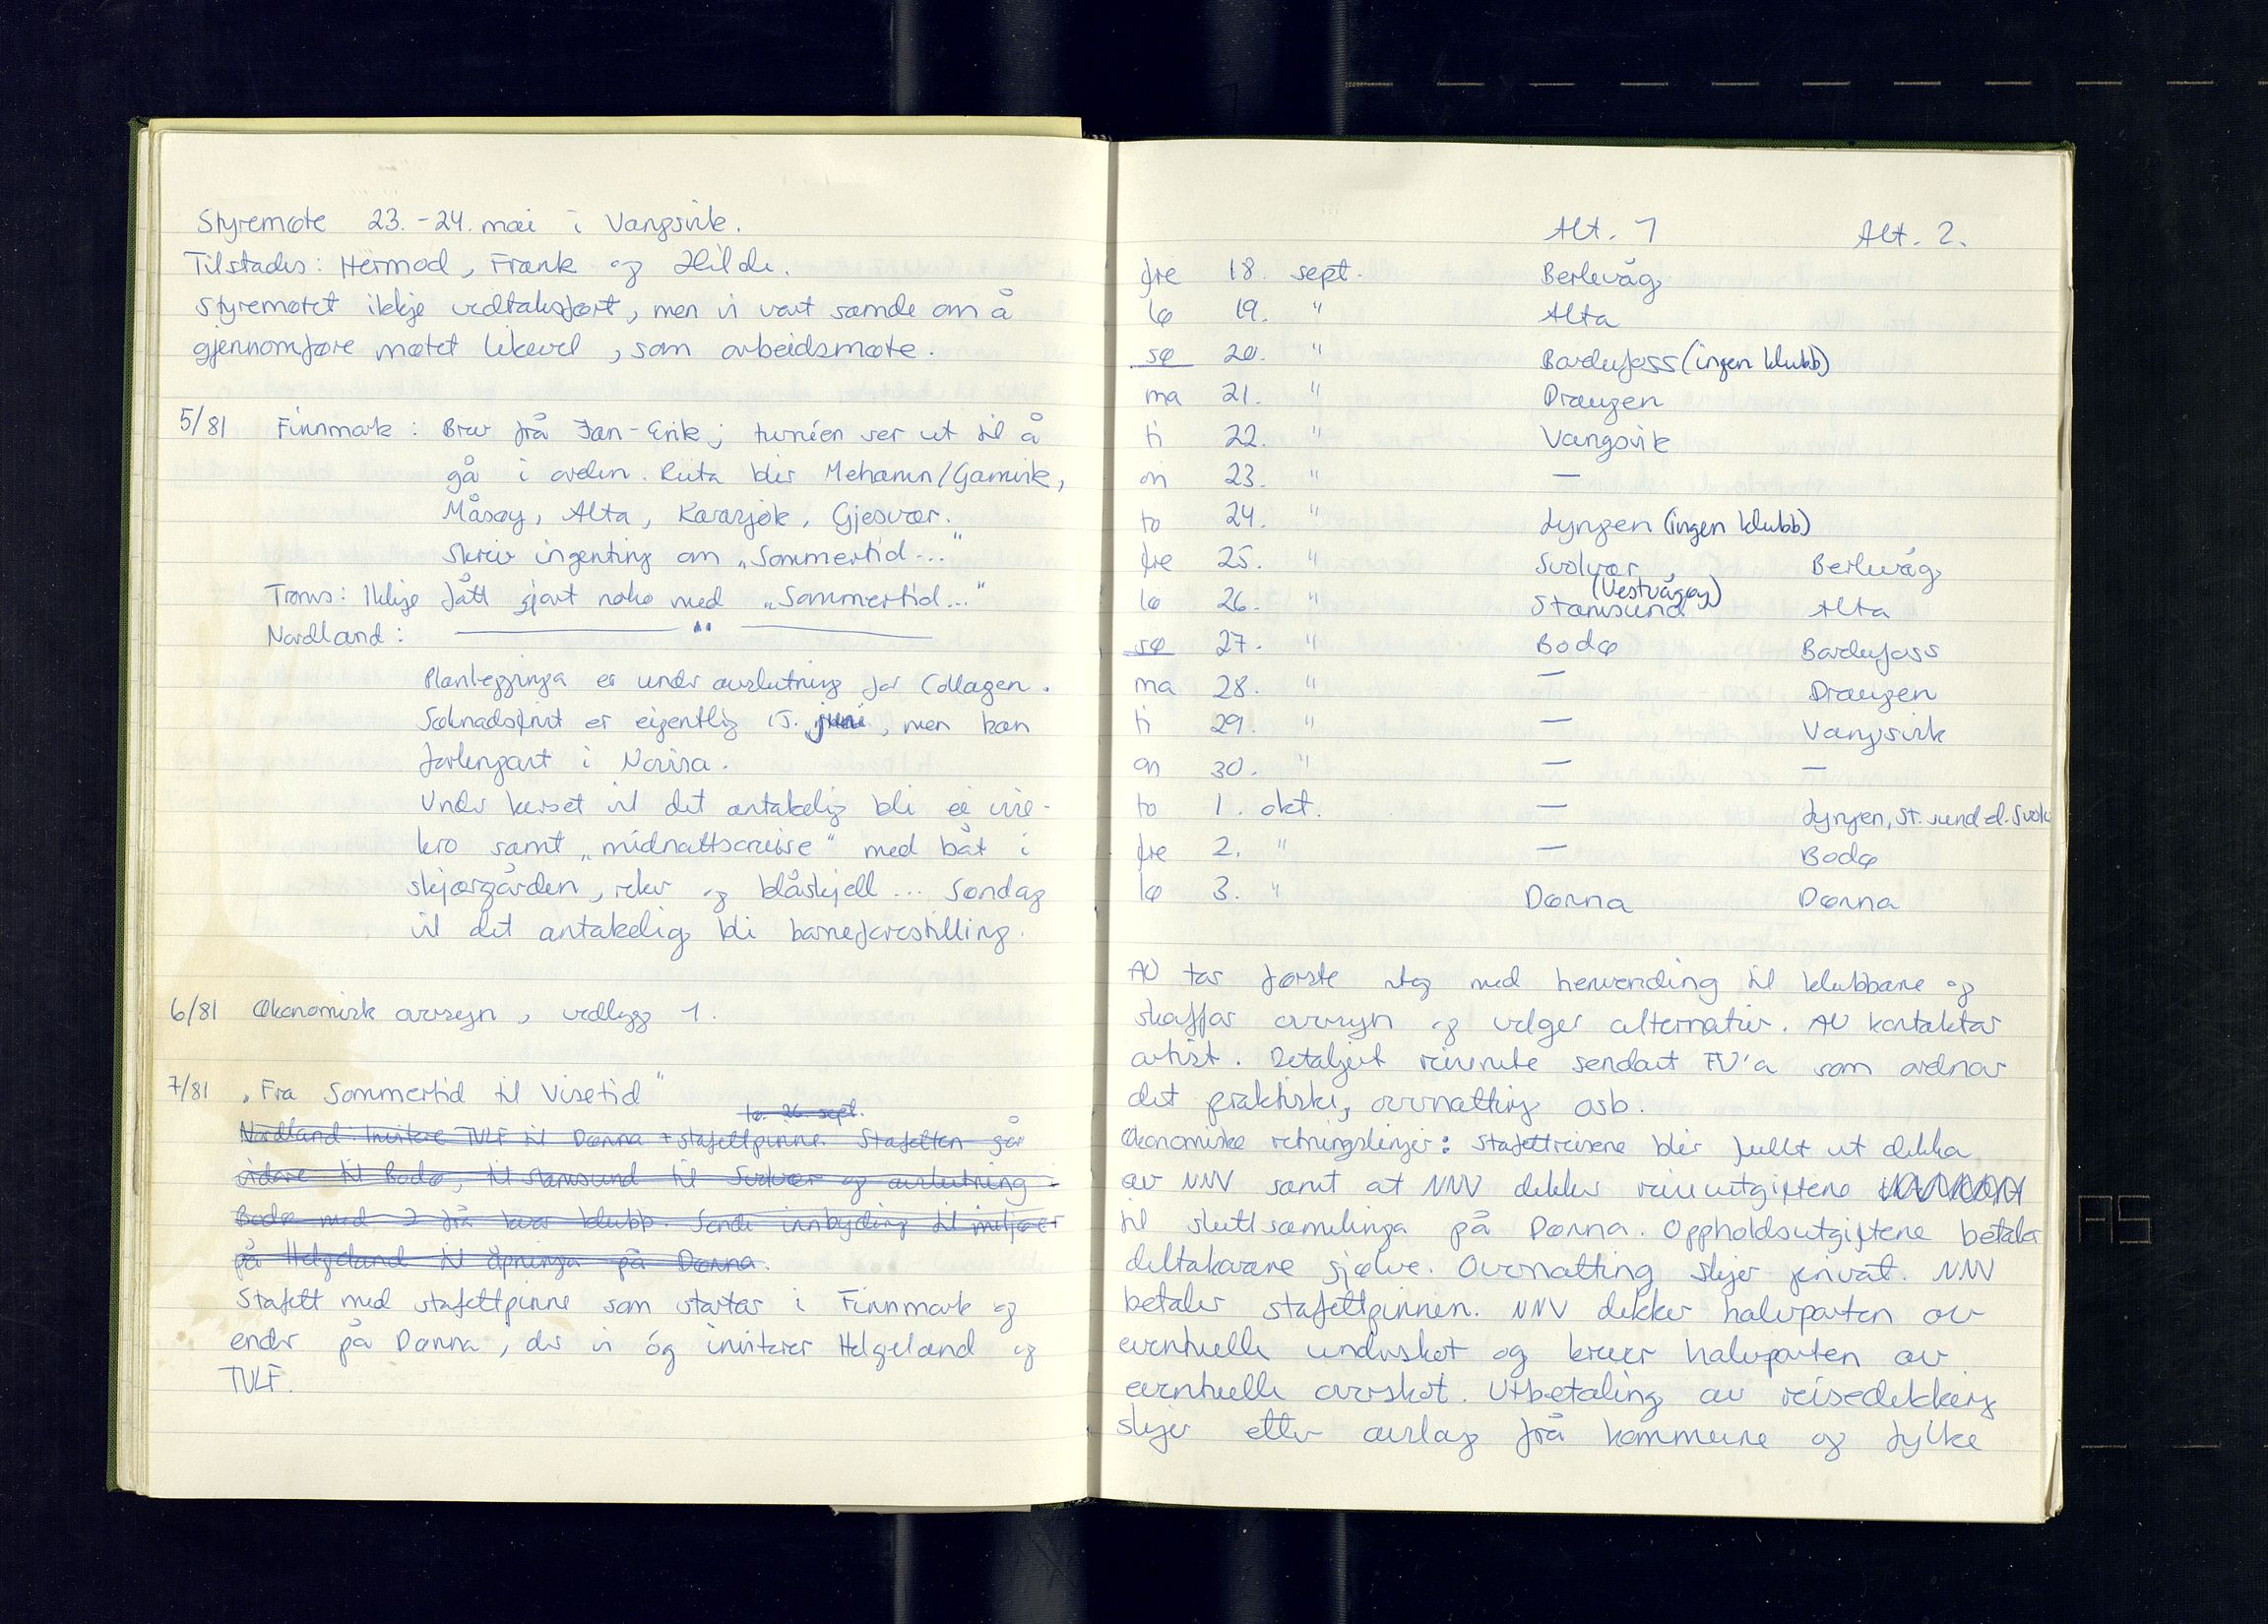 Styremøte 23.-24. mai i Vangsvik.
Tilstades: Hermod, Frank og Hilde.
Styremøtet ikkje vedtaksført, men vi vart samde om å
gjennomføre møtet likevel, som arbeidsmøte.
5/81 Finnmark: Brev frå Jan-Erik; turnéen ser ut til å
gå i orden. Ruta blir Mehamn/Gamvik,
Måsøy, Alta, Karasjok, Gjesvær.
Skriv ingenting om „Sommertid..."
Troms: Ikkje fått gjort noko med „Sommertid..."
Nordland: — " —
Planlegginga er under avslutning for Collagen.
Søknadsfrist er eigentlig 15. juni, men kan
forlengast i Norvisa.
Under kurset vil det antakelig bli ei vise-
kro samt „midnattscruise" med båt i
skjærgården, reker og blåskjell... Søndag
vil det antakelig bli barneforestilling.
6/81 Økonomisk oversyn, vedlegg 1.
7/81 „Fra Sommertid til Visetid"
lø. 26. sept.
Nordland: Invitere TVLF til Dønna + stafettpinne. Stafetten går
vidare til Bodø, til Stamsund til Svolvær og avslutning i
Bodø med 2 frå kvar klubb. Sende innbyding til miljøer
på Helgeland til åpninga på Dønna.
Stafett med stafettpinne som startar i Finnmark og
ender på Dønna, der vi óg inviterer Helgeland og
TVLF.
Alt. 1 Alt. 2.
fre 18. sept. Berlevåg
lø 19. " Alta
sø 20. " Bardufoss (ingen klubb)
ma 21. " Draugen
ti 22. " Vangsvik
on 23. " —
to 24. " Lyngen (ingen klubb)
fre 25. " Svolvær Berlevåg
(Vestvågøy)
lø 26. " Stamsund Alta
sø 27. " Bodø Bardufoss
ma 28. " — Draugen
ti 29. " — Vangsvik
on 30. " — —
to 1. okt. — Lyngen, St.sund el. Svolv
fre 2. " — Bodø
lø 3. " Dønna Dønna
AU tar første steg med henvending til klubbane og
skaffar oversyn og velger alternativ. AU kontaktar
artist. Detaljert reiserute sendast FV'a som ordnar
det praktiske, overnatting osb.
Økonomiske retningslinjer: Stafettreisene blir fullt ut dekka
av NNV samt at NNV dekker reiseutgiftene
til sluttsamlinga på Dønna. Oppholdsutgiftene betaler
deltakarane sjølve. Overnatting skjer privat. NNV
betaler stafettpinnen. NNV dekker halvparten av
eventuelle underskot og krever halvparten av
eventuelle overskot. Utbetaling av reisedekking
skjer etter avslag frå kommune og fylke